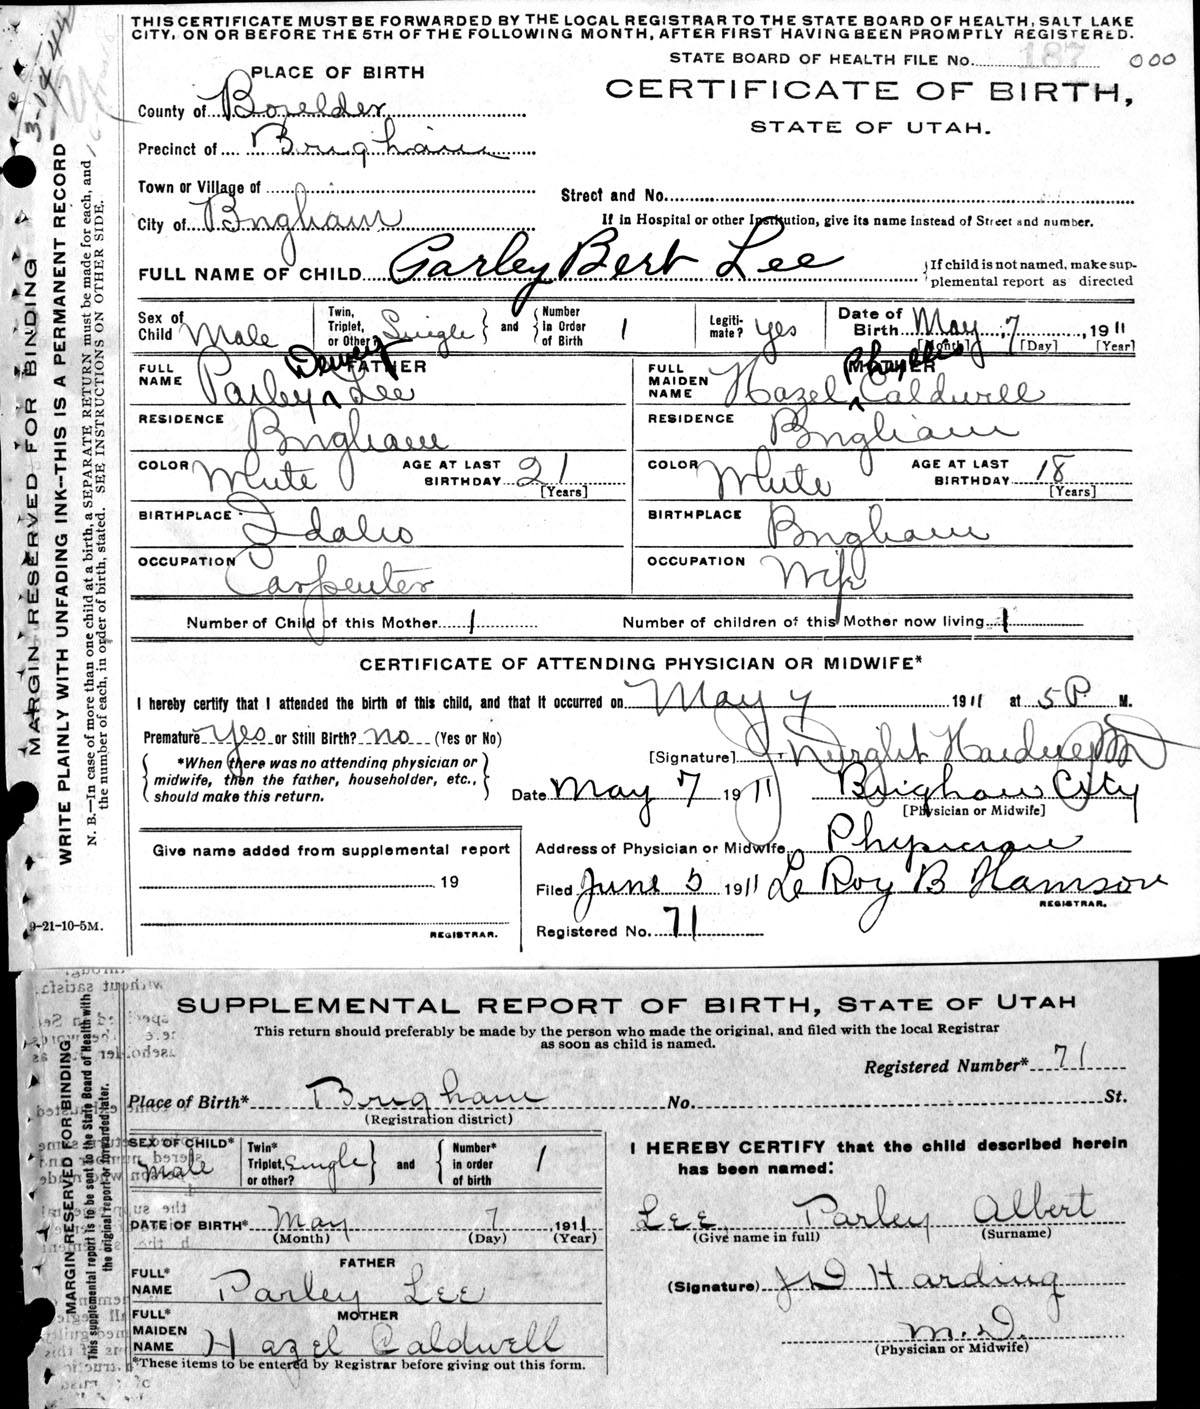 THIS CERTIFICATE MUST BE FORWARDED BY THE LOCAL REGISTRAR TO THE STATE BOARD OF HEALTH, SALT LAKE
CITY, ON OR BEFORE THE 5TH OF THE FOLLOWING MONTH, AFTER FIRST HAVING BEEN PROMPTLY REGISTERED.
STATE BOARD OF HEALTH FILE No. 187 000
PLACE OF BIRTH
CERTIFICATE OF BIRTH,
STATE OF UTAH.
County of Boxelder
Precinct of Brigham
Town or Village of
Street and No.
City of Brigham
If in Hospital or other Institution, give its name instead of Street and number.
FULL NAME OF CHILD Parley Bert Lee
If child is not named, make sup-
plemental report as directed
Sex of Child Male
Twin, Triplet, or Other? Single and Number In Order of Birth 1
Legiti- mate? Yes
Date of Birth May 7 1911
[Month] [Day] [Year]
FATHER
FULL NAME Parley Dewey Lee
MOTHER
FULL MAIDEN NAME Hazel Phyllis Caldwell
RESIDENCE Brigham
RESIDENCE Brigham
COLOR White AGE AT LAST BIRTHDAY 21 [Years]
COLOR White AGE AT LAST BIRTHDAY 18 [Years]
BIRTHPLACE Idaho
BIRTHPLACE Brigham
OCCUPATION Carpenter
OCCUPATION Wife
Number of Child of this Mother 1 Number of children of this Mother now living 1
CERTIFICATE OF ATTENDING PHYSICIAN OR MIDWIFE*
I hereby certify that I attended the birth of this child, and that it occurred on May 7 1911 at 5 P M.
Premature Yes or Still Birth? no (Yes or No)
*When there was no attending physician or
midwife, then the father, householder, etc.,
should make this return.
[Signature] J Dwight Harding MD
Date May 7 1911 Brigham City
[Physician or Midwife]
Give name added from supplemental report
19
REGISTRAR.
Address of Physician or Midwife Physician
Filed June 5 1911 LeRoy B Hamson
REGISTRAR.
Registered No. 71
9-21-10-5M.
MARGIN RESERVED FOR BINDING
WRITE PLAINLY WITH UNFADING INK--THIS IS A PERMANENT RECORD
N. B.—In case of more than one child at a birth, a SEPARATE RETURN must be made for each, and
the number of each, in order of birth, stated. SEE INSTRUCTIONS ON OTHER SIDE.
SUPPLEMENTAL REPORT OF BIRTH, STATE OF UTAH
This return should preferably be made by the person who made the original, and filed with the local Registrar
as soon as child is named.
Registered Number* 71
Place of Birth* Brigham No. St.
(Registration district)
SEX OF CHILD* Male
Twin* Triplet, or other? Single and Number* in order of birth 1
DATE OF BIRTH* May 7 1911
(Month) (Day) (Year)
FATHER
FULL* NAME Parley Lee
MOTHER
FULL* MAIDEN NAME Hazel Caldwell
*These items to be entered by Registrar before giving out this form.
I HEREBY CERTIFY that the child described herein
has been named:
Lee, Parley Albert
(Give name in full) (Surname)
(Signature) J D Harding
M.D.
(Physician or Midwife)
MARGIN RESERVED FOR BINDING
This supplemental report is to be sent to the State Board of Health with
the original report or forwarded later.